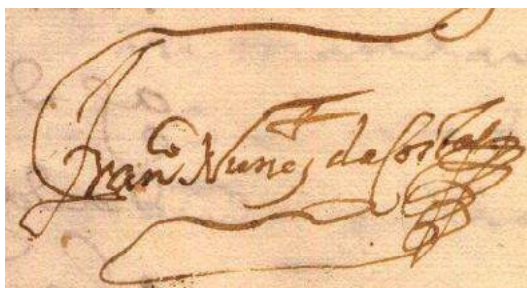 Franco Nunes da Costa